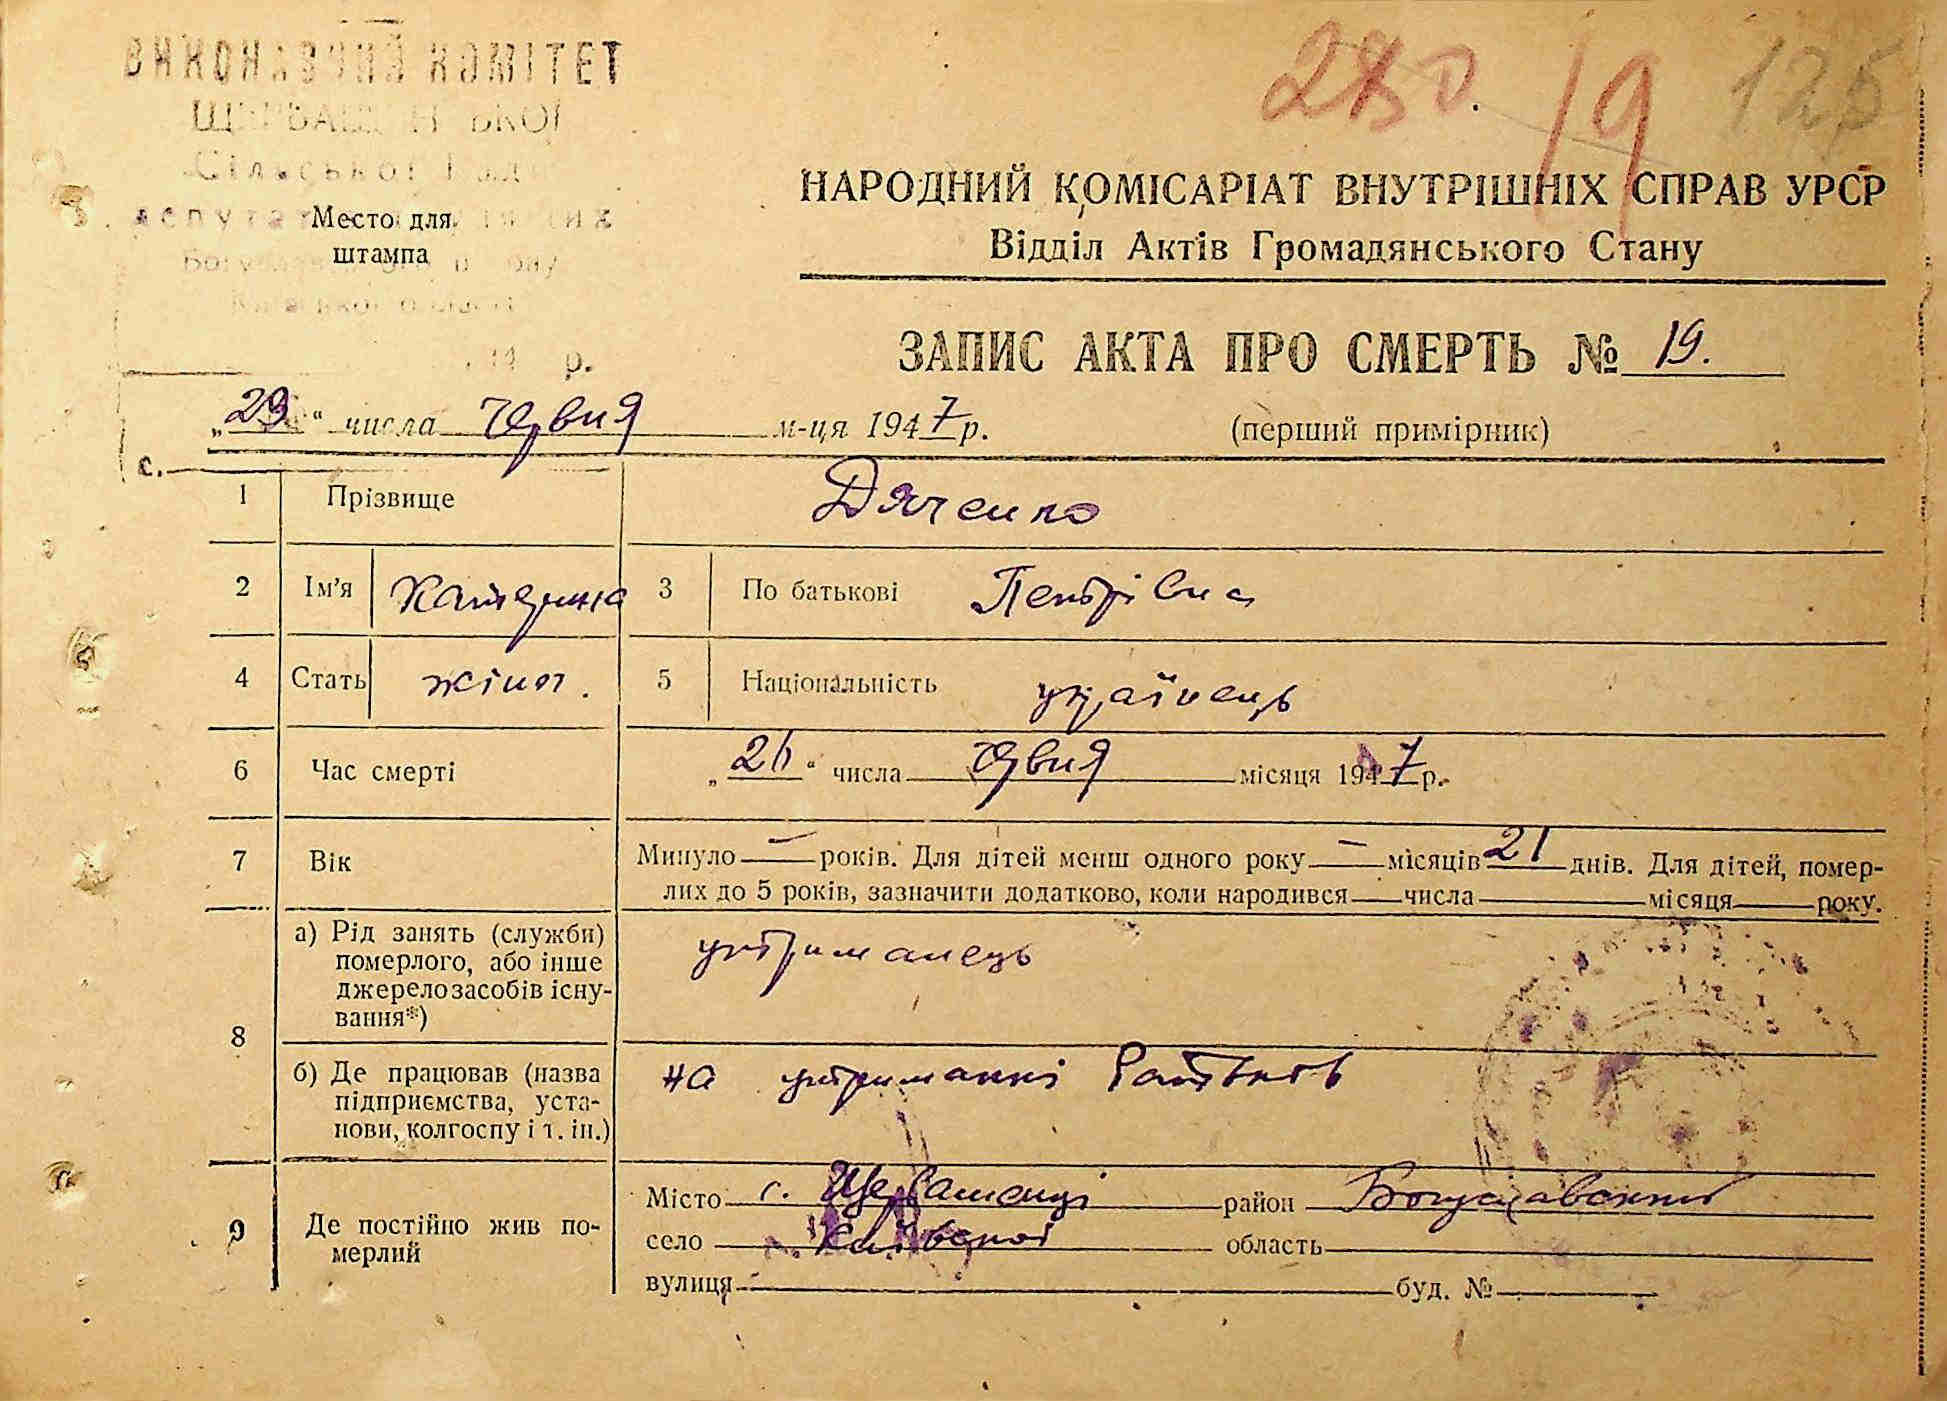 ВИКОНАВЧИЙ КОМІТЕТ
Сільської Ради
Место для
штампа
280. 19 125
НАРОДНИЙ КОМІСАРІАТ ВНУТРІШНІХ СПРАВ УРСР
Відділ Актів Громадянського Стану
ЗАПИС АКТА ПРО СМЕРТЬ № 19.
р.
„23“ числа червня м-ця 1947 р. (перший примірник)
с.
1 Прізвище Дяченко
2 Ім'я Катерина 3 По батькові Петрівна
4 Стать жіноч. 5 Національність українець
6 Час смерті „21“ числа червня місяця 1947 р.
7 Вік Минуло — років. Для дітей менш одного року — місяців 21 днів. Для дітей, помер-
лих до 5 років, зазначити додатково, коли народився числа місяця року.
8 а) Рід занять (служби)
померлого, або інше
джерело засобів існу-
вання*) утриманець
б) Де працював (назва
підприємства, уста-
нови, колгоспу і т. ін.) на утриманні батьків
9 Де постійно жив по-
мерлий
Місто с. Щербашенці район Богуславський
село Київської область
вулиця буд. №